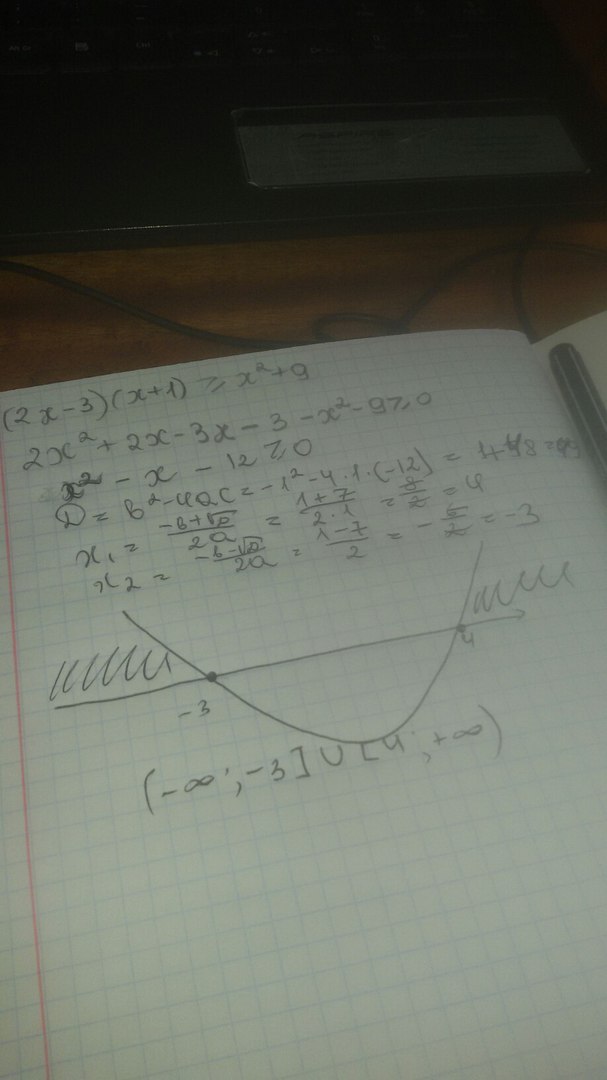 (2x-3)(x+1) ≥ x²+9
2x² + 2x - 3x - 3 - x² - 9 ≥ 0
x² - x - 12 ≥ 0
D = b² - 4ac = -1² - 4·1·(-12) = 1+48 = 49
x₁ = (-b+√D)/2a = (1+7)/(2·1) = 8/2 = 4
x₂ = (-b-√D)/2a = (1-7)/2 = -6/2 = -3
4
-3
(-∞; -3] ∪ [4; +∞)